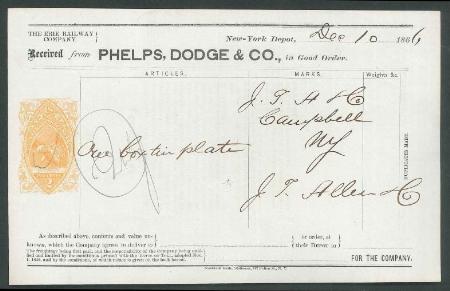 THE ERIE RAILWAY COMPANY.
New-York Depot, Dec 10 1866
Received from PHELPS, DODGE & CO., in Good Order.
ARTICLES. MARKS. Weights &c.
J. T. A & Co
Campbell
One box tin plate NY
J. T. Allen & Co
DUPLICATE MARK.
As described above, contents and value un-
known, which the Company agrees to deliver to
or order, at
their Depot in
FOR THE COMPANY.